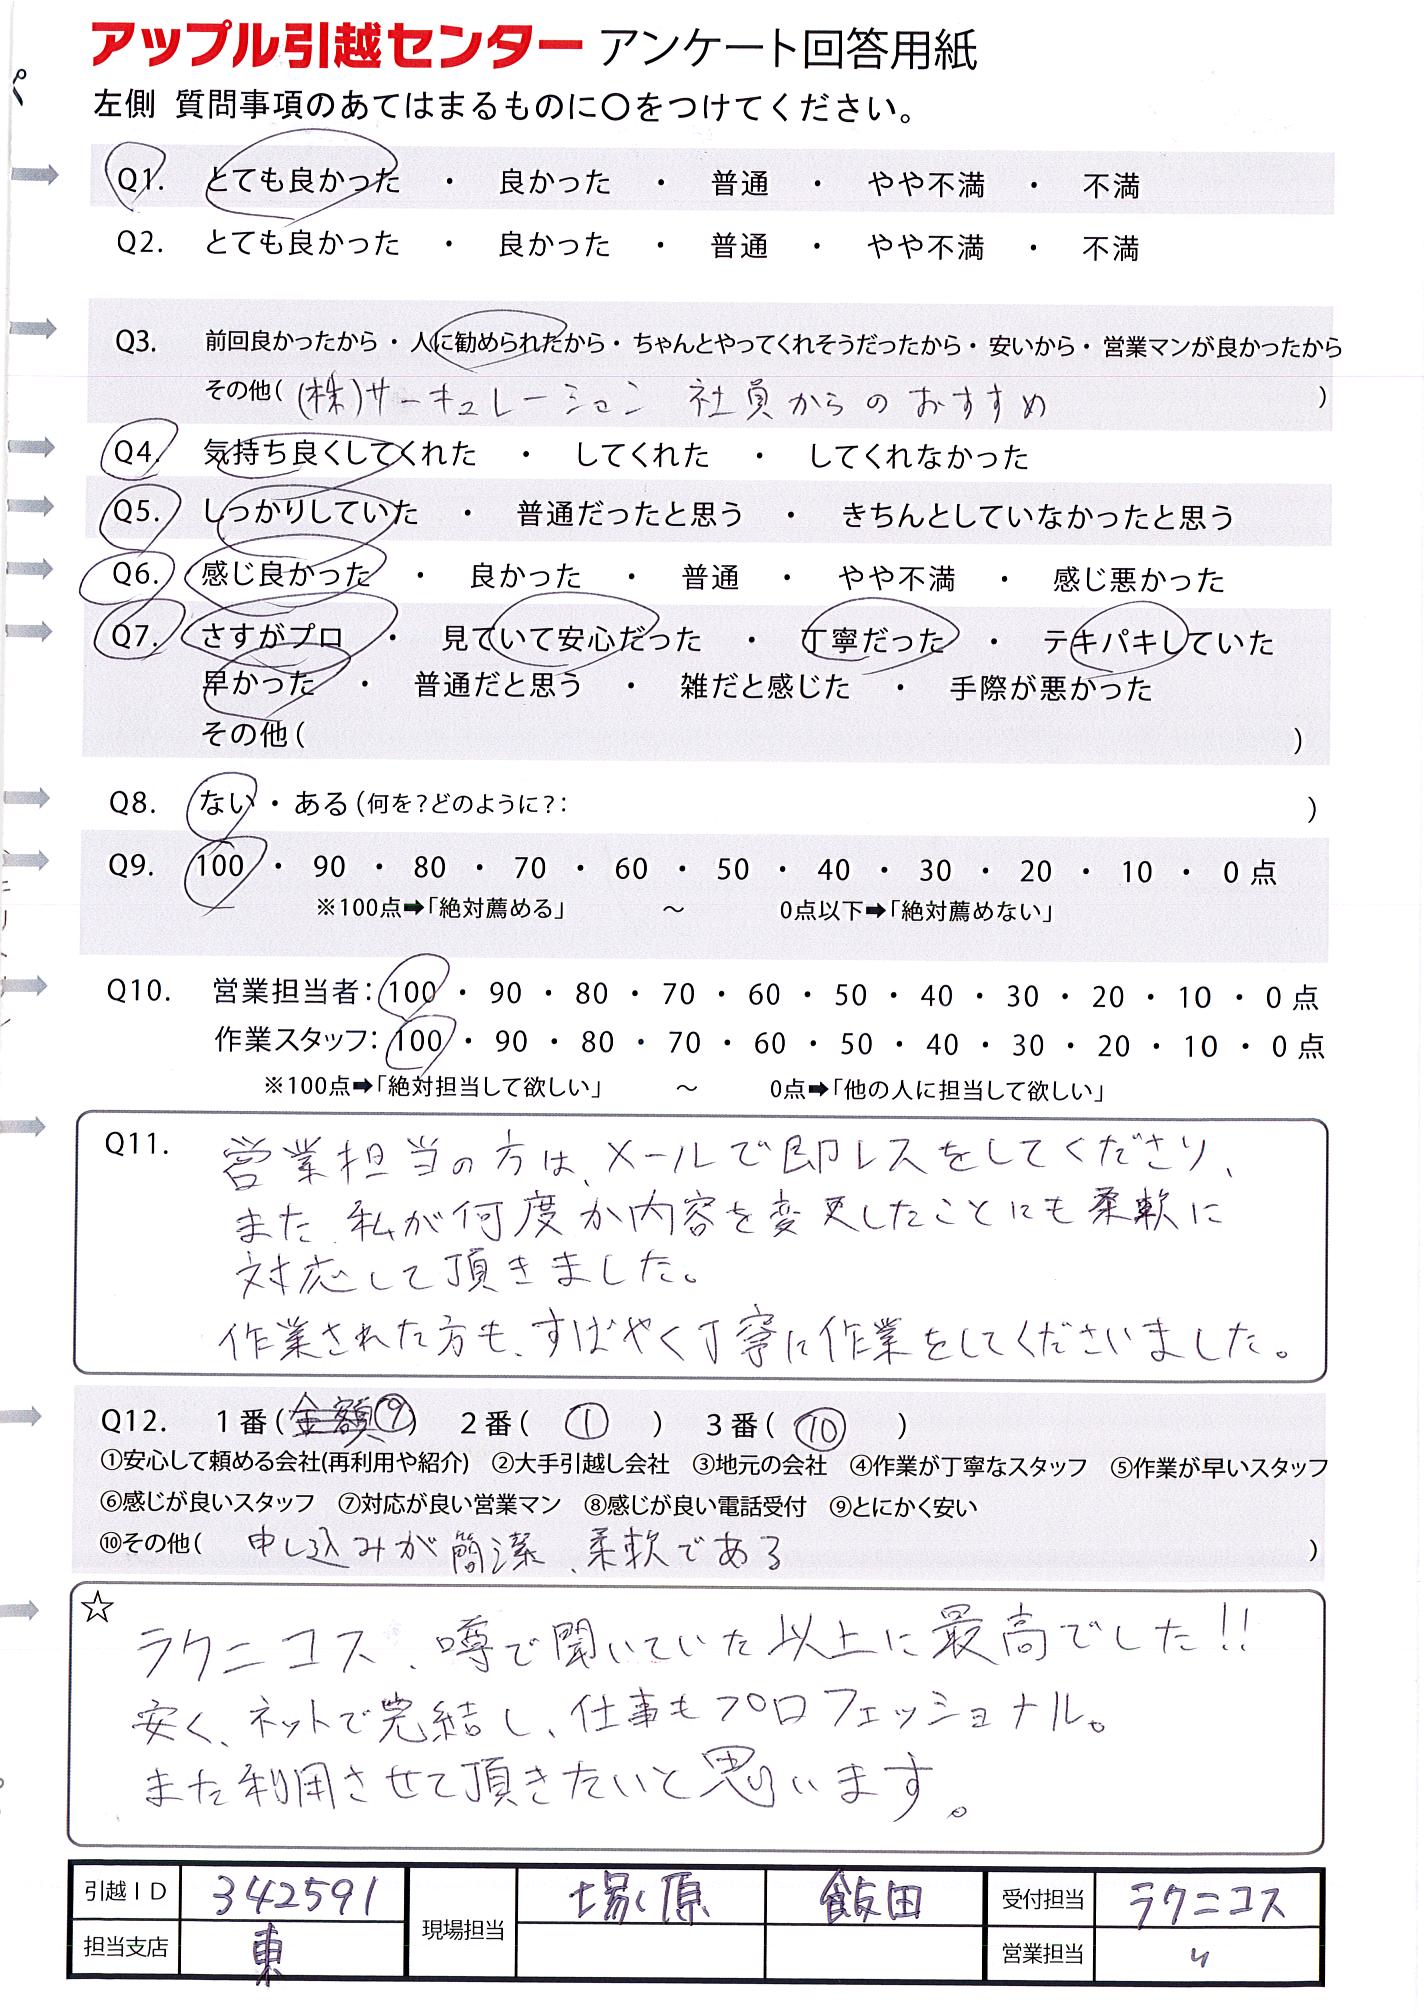 アップル引越センター アンケート回答用紙
左側 質問事項のあてはまるものに〇をつけてください。
Q1. とても良かった ・ 良かった ・ 普通 ・ やや不満 ・ 不満
Q2. とても良かった ・ 良かった ・ 普通 ・ やや不満 ・ 不満
Q3. 前回良かったから・人に勧められたから・ちゃんとやってくれそうだったから・安いから・営業マンが良かったから
その他( (株)サーキュレーション 社員からのおすすめ )
Q4. 気持ち良くしてくれた ・ してくれた ・ してくれなかった
Q5. しっかりしていた ・ 普通だったと思う ・ きちんとしていなかったと思う
Q6. 感じ良かった ・ 良かった ・ 普通 ・ やや不満 ・ 感じ悪かった
Q7. さすがプロ ・ 見ていて安心だった ・ 丁寧だった ・ テキパキしていた
早かった ・ 普通だと思う ・ 雑だと感じた ・ 手際が悪かった
その他( )
Q8. ない ・ ある(何を?どのように?: )
Q9. 100 ・ 90 ・ 80 ・ 70 ・ 60 ・ 50 ・ 40 ・ 30 ・ 20 ・ 10 ・ 0 点
※100点➡「絶対薦める」 ～ 0点以下➡「絶対薦めない」
Q10. 営業担当者: 100 ・ 90 ・ 80 ・ 70 ・ 60 ・ 50 ・ 40 ・ 30 ・ 20 ・ 10 ・ 0 点
作業スタッフ: 100 ・ 90 ・ 80 ・ 70 ・ 60 ・ 50 ・ 40 ・ 30 ・ 20 ・ 10 ・ 0 点
※100点➡「絶対担当して欲しい」 ～ 0点➡「他の人に担当して欲しい」
Q11. 営業担当の方は、メールで即レスをしてくださり、
また、私が何度か内容を変更したことにも柔軟に
対応して頂きました。
作業された方も、すばやく丁寧に作業をしてくださいました。
Q12. 1番(金額⑨) 2番( ① ) 3番( ⑩ )
①安心して頼める会社(再利用や紹介) ②大手引越し会社 ③地元の会社 ④作業が丁寧なスタッフ ⑤作業が早いスタッフ
⑥感じが良いスタッフ ⑦対応が良い営業マン ⑧感じが良い電話受付 ⑨とにかく安い
⑩その他( 申し込みが簡潔、柔軟である )
☆
ラクニコス、噂で聞いていた以上に最高でした!!
安く、ネットで完結し、仕事もプロフェッショナル。
また利用させて頂きたいと思います。
引越ID 342591 現場担当 塚原 飯田 受付担当 ラクニコス
担当支店 東 営業担当 〃